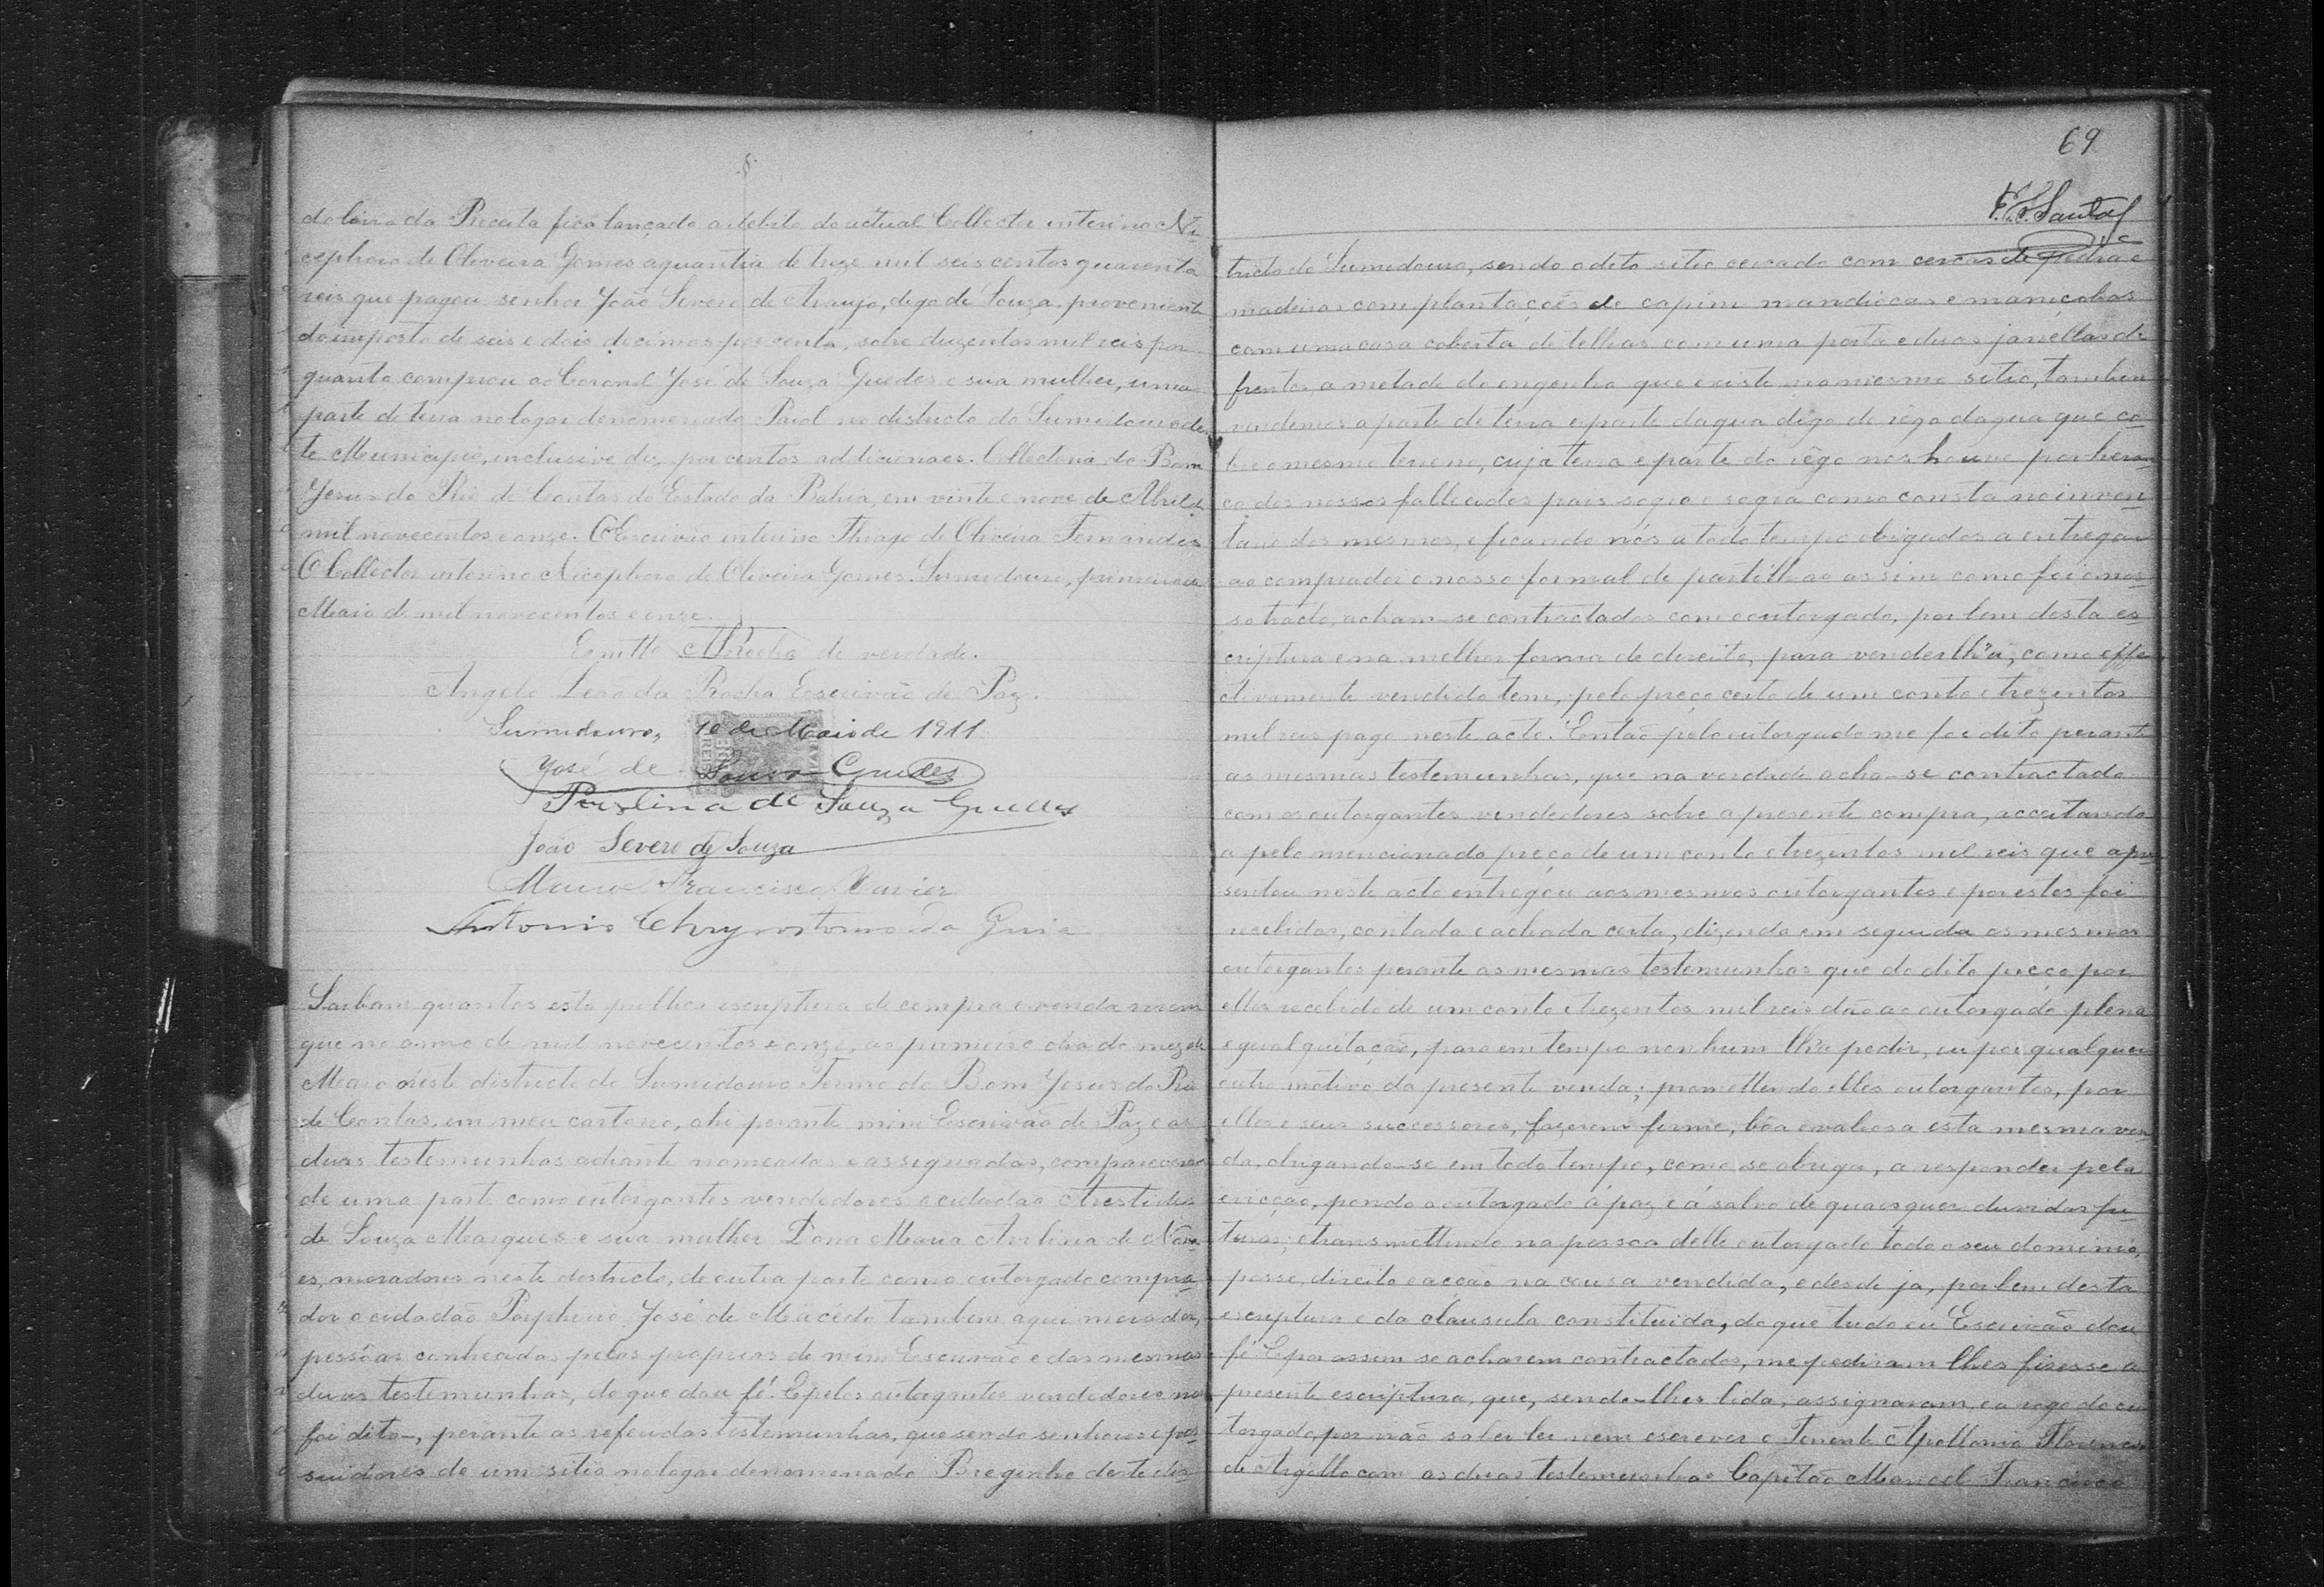 do livro da Receita fica lançado a debito do actual Collector interino Ni-
cephoro de Oliveira Gomes a quantia de treze mil seis centos quarenta
reis que pagou senhor João Severo de Araujo, digo de Souza, proveniente
do imposto de seis e dois decimos por cento, sobre duzentos mil reis por
quanto comprou ao Coronel José de Souza Guedes e sua mulher, uma
parte de terra no logar denomenado Paiol no districto do Sumidouro des-
te Municipio, inclusive dez por centos addicionaes. Collectoria do Bom
Jesus do Rio de Contas do Estado da Bahia, em vinte e nove de Abril de
mil novecentos e onze. O Escrivão interino Thiago de Oliveira Fernandes
O Collector interino Nicephoro de Oliveira Gomes. Sumidouro, primeiro de
Maio de mil novecentos e onze.
Em tto ARocha de verdade.
Angelo Leão da Rocha Escrivão de Paz.
Sumidouro, 1º de Maio de 1911
José de Souza Guedes
de Souza Guedes
João Severo de Souza
Manoel Francisco Xavier
Antonio Chrysostomo da Guia
Saibam quantos esta publica escriptura de compra e venda virem
que no anno de mil novecentos e onze, ao primeiro dia do mez de
Maio neste districto do Sumidouro Termo do Bom Jesus do Rio
de Contas, em meu cartorio, ahi perante mim Escrivão de Paz e as
duas testemunhas adiante nomeadas e assignadas, compareceram
de uma parte como outorgantes vendedores o cidadão Aristides
de Souza Marques e sua mulher Dona Maria Avelina de Nova-
es, moradores neste destricto, de outra parte como outorgado compra-
dor o cidadão Porpherio José de Macêdo tambem aqui morador,
pessôas conhecidas pelas proprias de mim Escrivão e das mesmas
duas testemunhas, do que dou fé. E pelos outorgantes vendedores me
foi dito-, perante as referidas testemunhas, que sendo senhores e pos-
suidores de um sitio no logar denomenado Breginho deste dis-
69
F. S. Santos
tricto do Sumidouro, sendo o dito sitio cercado com cercas de pedra e
madeiras com plantações de capim mandiocas e maniçobas
com uma casa coberta de telhas com uma porta e duas janellas de
frentes, a metade do engenho que existe no mesmo sitio, tambem
vendemos a parte de terra e parte dagua digo do rêgo dagua que co-
bre o mesmo terreno, cuja terra e parte do rêgo nos houve por heran-
ça dos nossos fallecidos pais sogro e sogra como consta no inven-
tario dos mesmos, e ficando nós a todo tempo obrigados a entregar
ao comprador o nosso formal de partilha ao assim como foi
acham-se contractados com o outorgado, por bem desta es-
criptura e na melhor forma de direito, para vender lh'a, como effe-
ctivamente vendido tem, pelo preço certo de um conto e trezentos
mil reis pago neste acto. Então pelo outorgado me foi dito perante
as mesmas testemunhas, que na verdade acha-se contractado
com os outorgantes vendedores sobre a presente compra, acceitando
a pelo mencionado preço de um conto e trezentos mil reis que apre-
sentou neste acto entregou aos mesmos outorgantes e por estes foi
recebidos, contada e achada certa, dizendo em seguida os mesmos
outorgantes perante as mesmas testemunhas que do dito preço por
elles recebido de um conto e trezentos mil reis dão ao outorgado plena
e gual quitação, para em tempo nenhum lh'a pedir, ou por qualquer
outro motivo da presente venda; promettendo elles outorgantes, por
elles e seus successores, fazerem firme, bôa e valiosa esta mesma ven-
da, obrigando-se em todo tempo, como se obriga, a responder pela
evicção, pondo o outorgado á paz e á salvo de quaesquer duvidas fu-
turas; e transmettindo na pessoa delle outorgado todo o seu dominio,
posse, direito e acção na cousa vendida, e desde ja, por bem desta
escriptura e da clausula constituida, do que tudo eu Escrivão dou
fé. E por assim se acharem contractados, me pediram lhes fizesse a
presente escriptura, que, sendo-lhes lida, assignaram, e a rogo do ou-
torgado por não saber ler nem escrever o Tenente Apollonio Florencio
de Argollo com as duas testemunhas Capitão Manoel Francisco